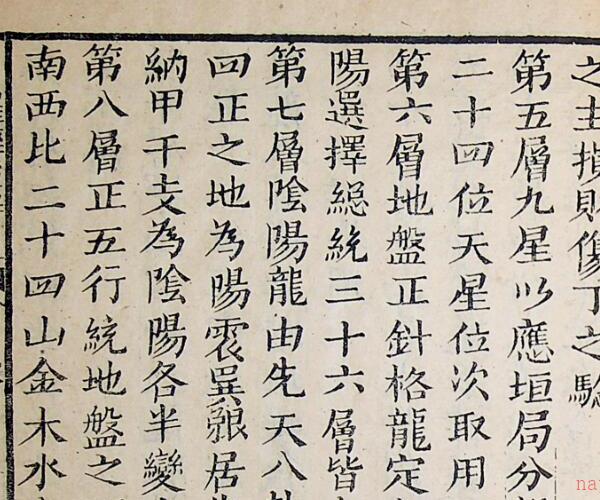 之主損財傷丁之驗
第五層九星以應垣局分
二十四位天星位次取用
第六層地盤正針格龍定
陽選擇緫統三十六層皆
第七層陰陽龍由先天八卦
四正之地為陽震巽艮居
納甲干支為陰陽各半變
第八層正五行統地盤之
南西比二十四山金木水
na